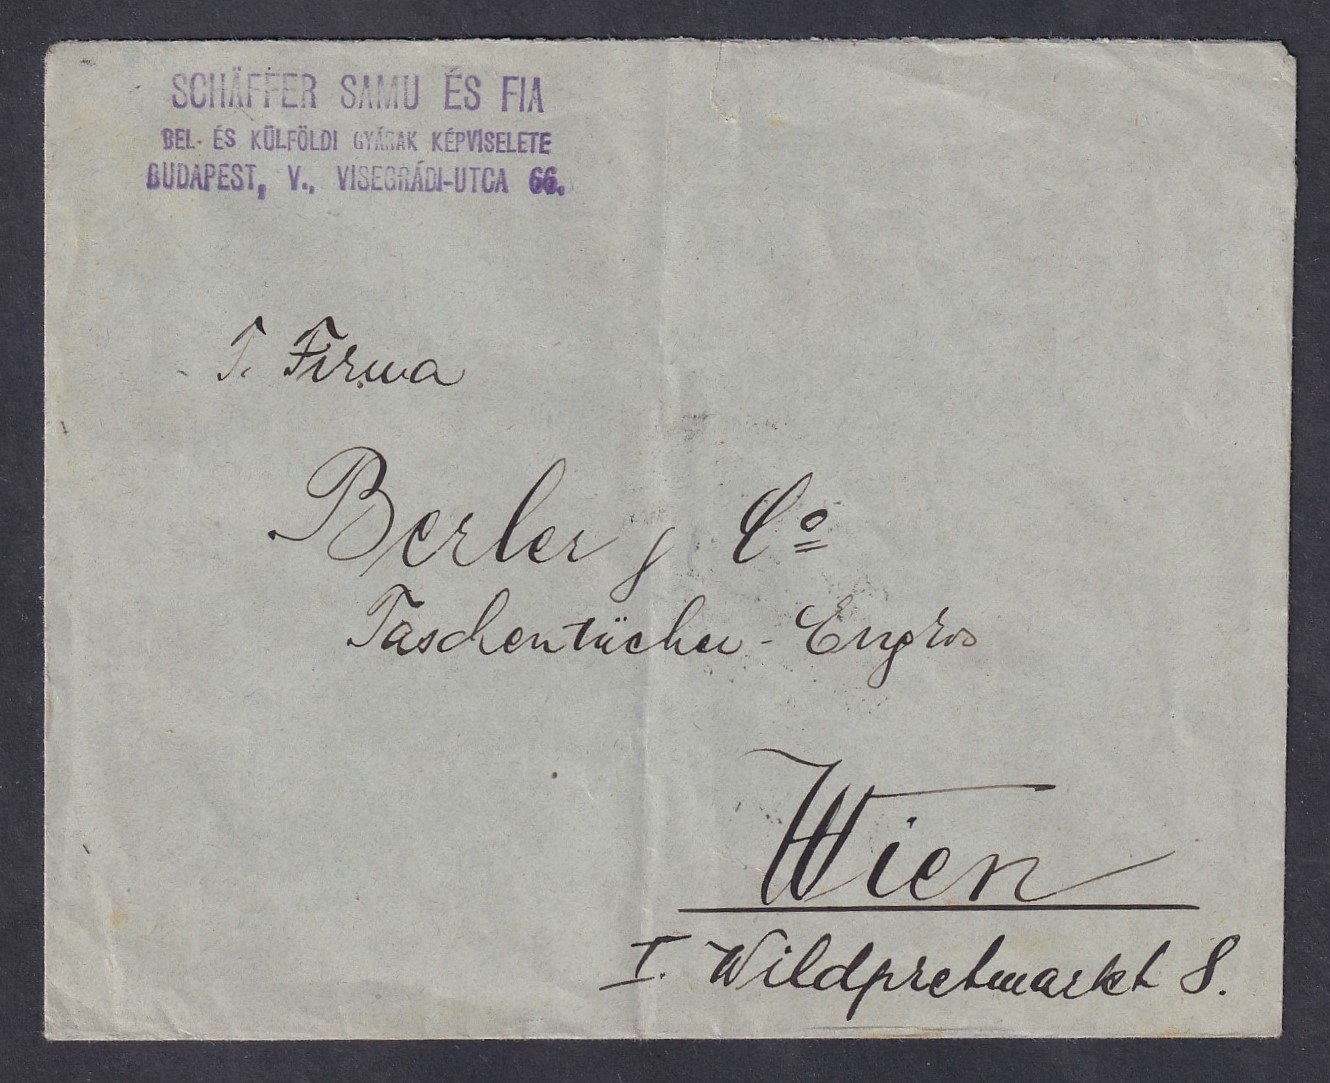 SCHÄFFER SAMU ÉS FIA
BEL- ÉS KÜLFÖLDI GYÁRAK KÉPVISELETE
BUDAPEST, V., VISEGRÁDI-UTCA 66.
T. Firma
Berler & Co
Taschentücher - Engros
Wien
I. Wildpretmarkt 8.